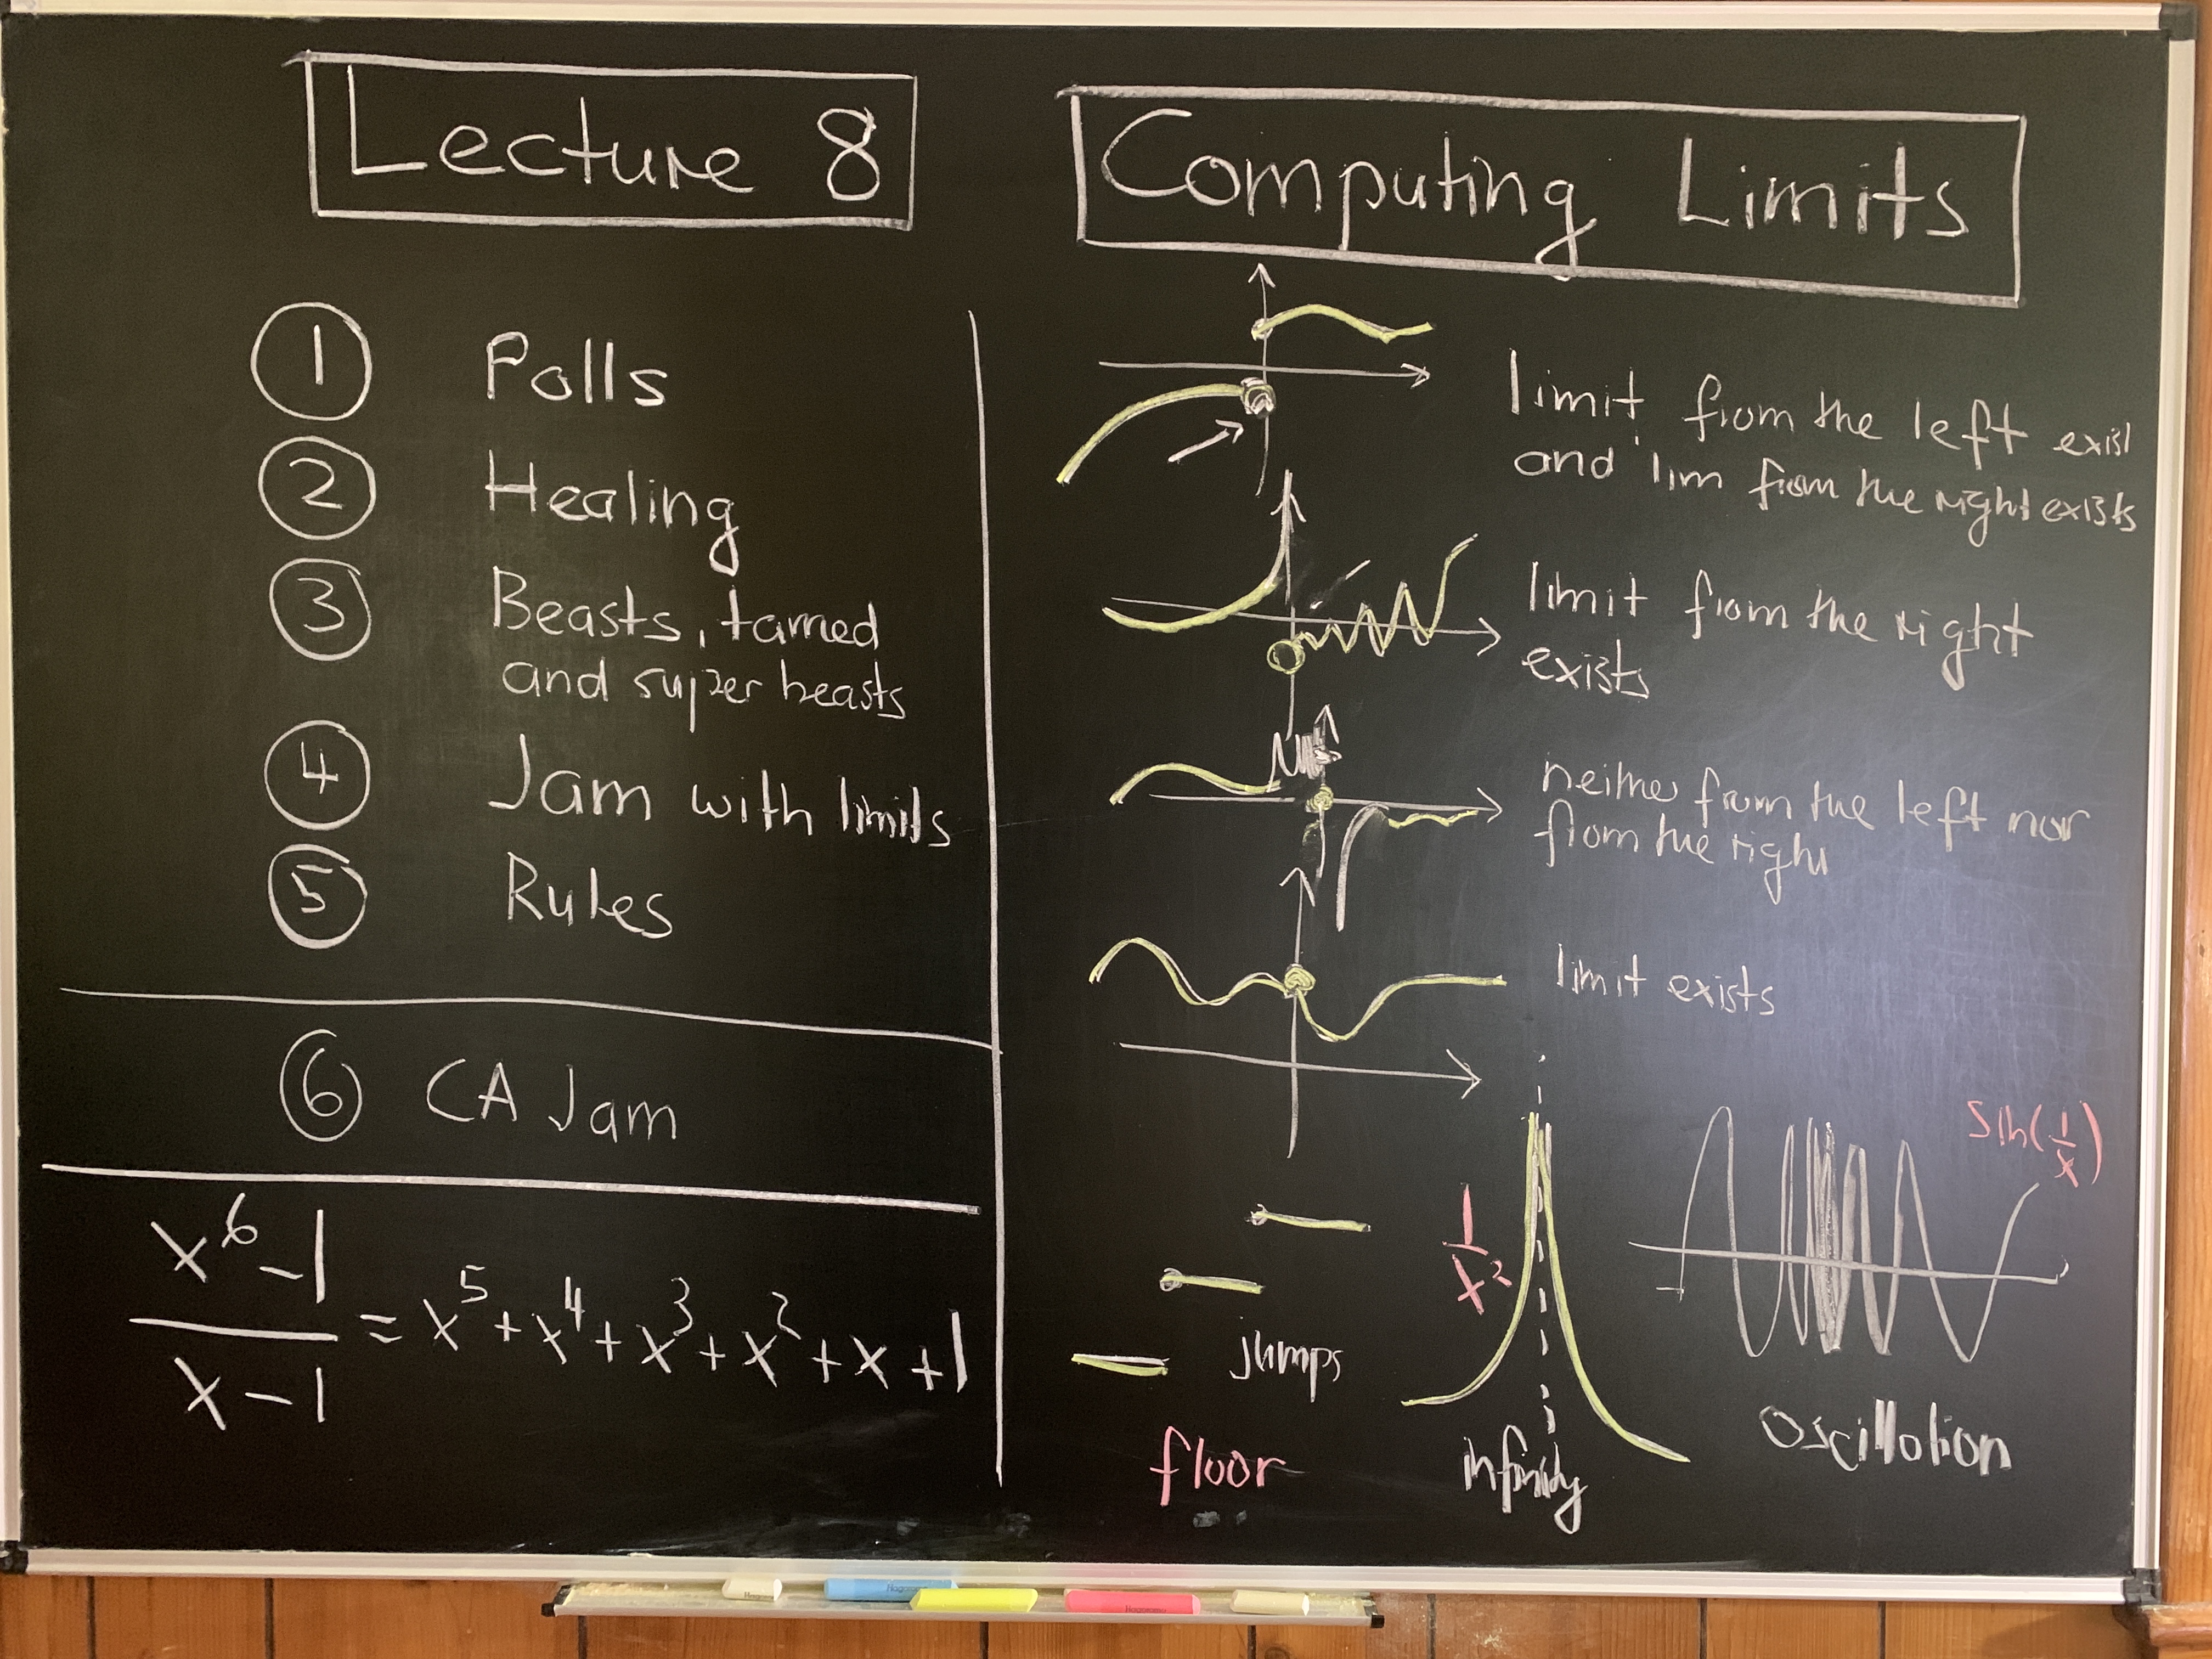 Lecture 8
① Polls
② Healing
③ Beasts, tamed
and super beasts
④ Jam with limits
⑤ Rules
⑥ CA Jam
x^6 - 1 / x - 1 = x^5 + x^4 + x^3 + x^2 + x + 1
Computing Limits
limit from the left exist
and lim from the right exists
limit from the right
exists
neither from the left nor
from the right
limit exists
jumps
floor
1/x^2
infinity
sin(1/x)
Oscillation
Hagoromo
Hagoromo